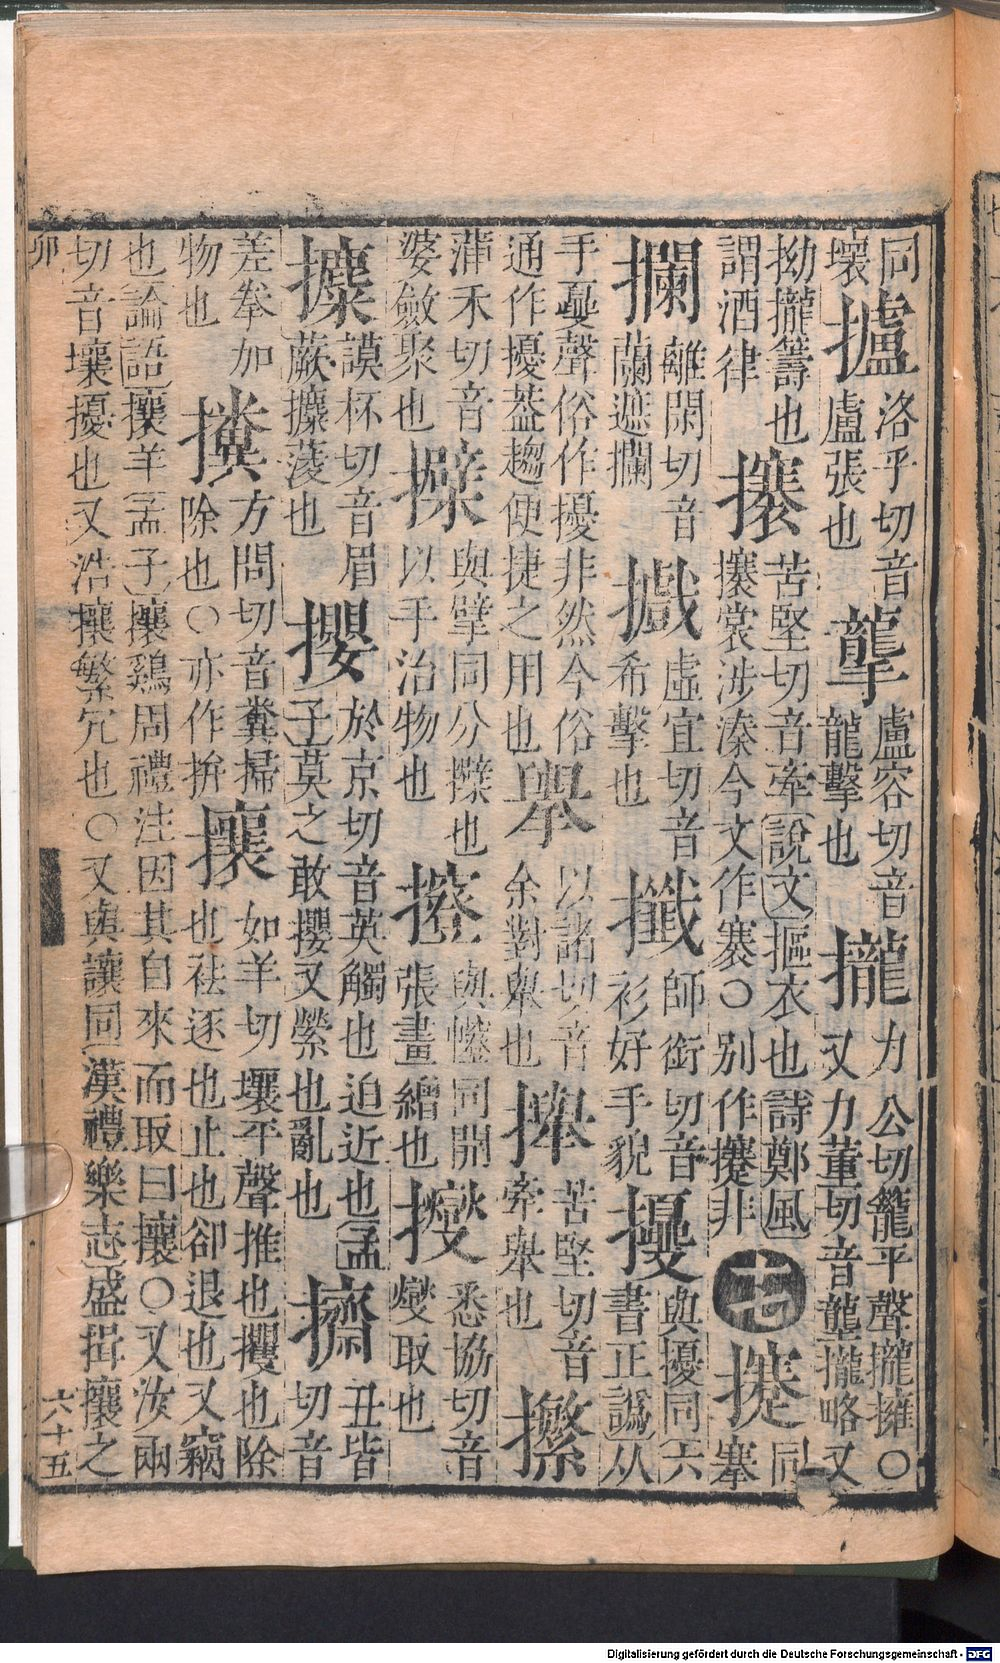 同
壞
攎
洛乎切音
盧張也
盧容切音
龍擊也
攏
力公切籠平聲攏擁○
又力董切音壟攏略又
拗攏籌也
謂酒律
攐
苦堅切音牽說文摳衣也詩鄭風
攐裳涉溱今文作褰○別作攓非
十七
攓
同
搴
攔
離閑切音
蘭遮攔
虛宜切音
希擊也
攕
師銜切音
衫好手貌
與擾同六
書正譌从
手夒聲俗作擾非然今俗
通作擾葢趨便捷之用也
擧
以諸切音
余對舉也
苦堅切音
牽舉也
蒲禾切音
婆斂聚也
與擘同分也
以手治物也
同開
張畫繒也
悉協切音
燮取也
攗
謨杯切音眉
蕨攗蔆也
攖
於京切音英觸也迫近也孟
子莫之敢攖又縈也亂也
擠
丑皆
切音
差拳加
物也
方問切音糞掃
除也○亦作拚
攘
如羊切壤平聲推也攫也除
也祛逐也止也卻退也又竊
也論語攘羊孟子攘鷄周禮注因其自來而取曰攘○又汝兩
切音壤擾也又浩攘繁冗也○又與讓同漢禮樂志盛揖攘之
卯
六十五
Digitalisierung gefördert durch die Deutsche Forschungsgemeinschaft - DFG